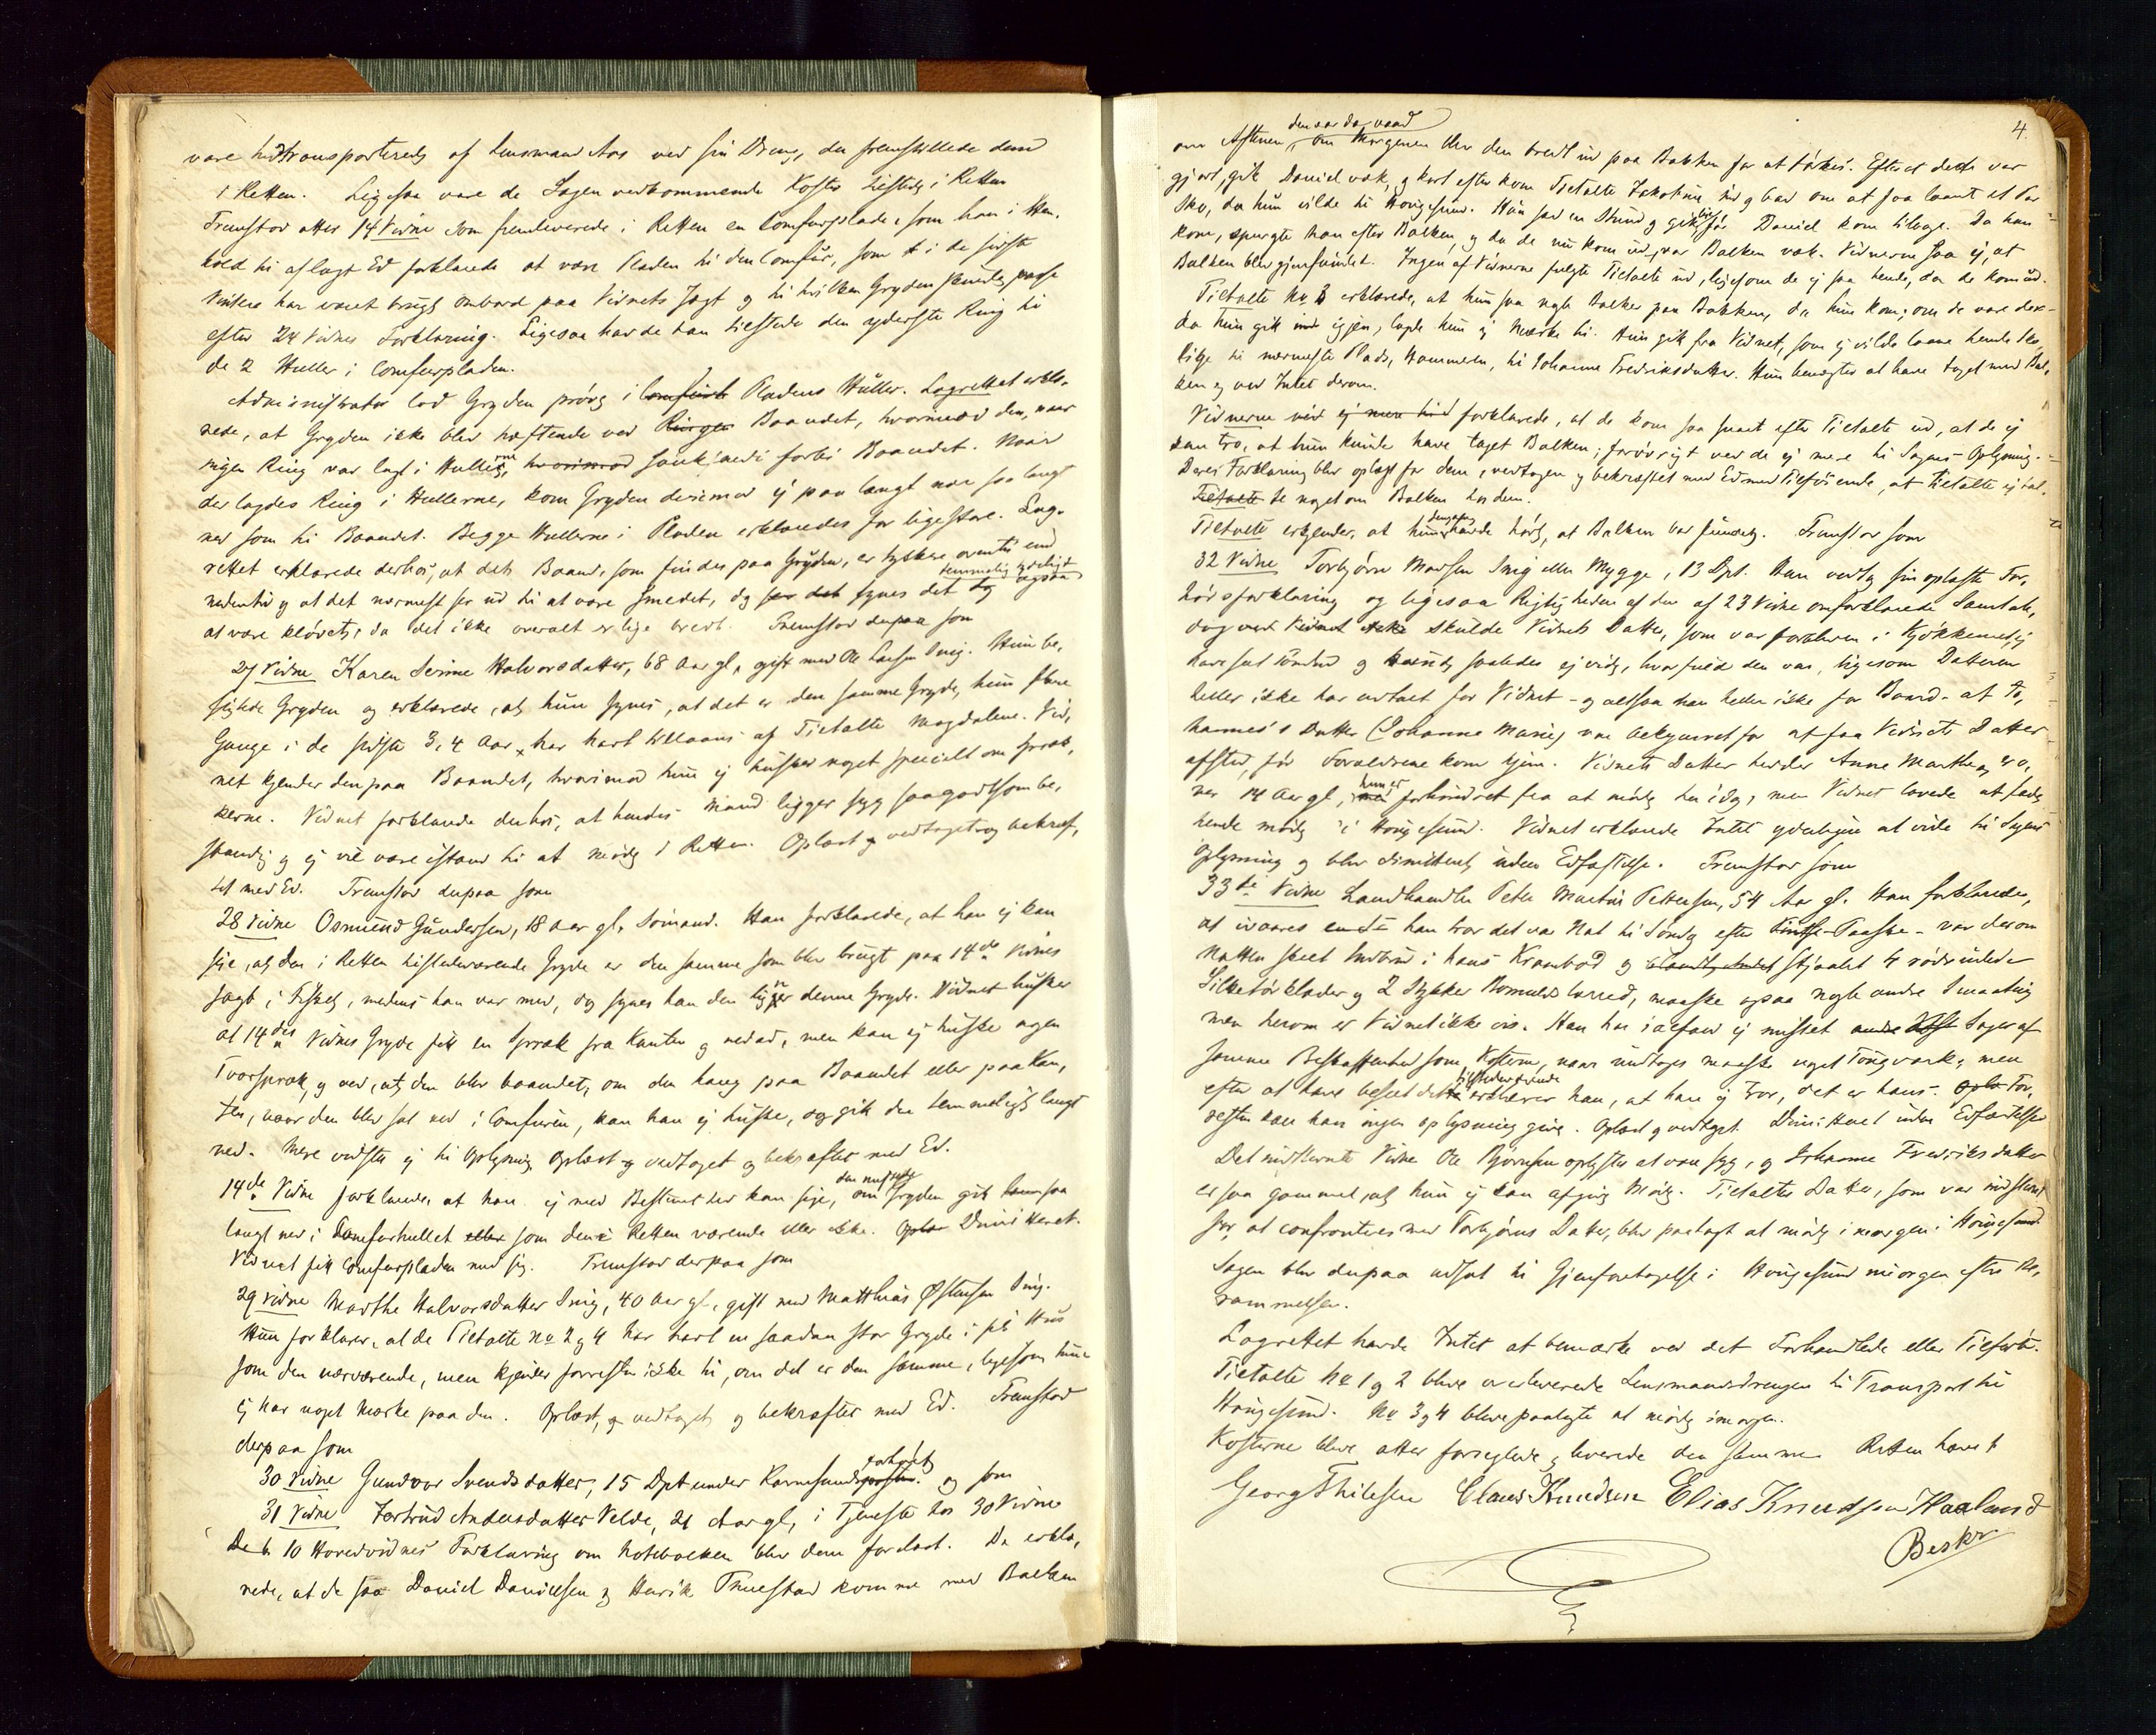 vare hidtransporterede af Lensmand Aas ved sin Dreng, der fremstillede dem
i Retten. Ligesaa vare de Sagen vedkommende Koster tilstede i Retten
Fremstod atter 14 Vidne som fremleverede i Retten en Comfurplade, som han i Hen-
hold til aflagt Ed forklarede at være Pladen til den Comfur, som i de sidste
Vintere har været brugt ombord paa Vidnets Jagt og til hvilken Gryden skulde passe
efter 24 Vidnes Forklaring. Ligesaa havde han tilstede den yderste Ring til
de 2 Huller i Comfurpladen.
Administrator lod Gryden prøve i Comfurets Pladens Huller. Lagrettet erklæ-
rede, at Gryden ikke blev hæftende ved Ringen Baandet, hvorimod den, naar
ingen Ring var lagt i Hullerne, hvorimod sank ned forbi Baandet. Naar
der lagdes Ring i Hullerne, kom Gryden derimod ej paa langt nær saa langt
ned som til Baandet. Begge Hullerne i Pladen erklæredes for ligestore. Lag-
rettet erklærede derhos, at det Baand, som findes paa Gryden, er tykkere oventil end
temmelig tydeligt
nedentil og at det nærmest ser ud til at være smedet, og synes det og ogsaa
at være kløvet, da det ikke overalt er lige bredt. Fremstod derpaa som
27 Vidne Karen Serine Halvorsdatter, 68 Aar gl., gift med Ole Larsen Snig. Hun be-
sigtede Gryden og erklærede, at hun synes, at det er den samme Gryde, hun flere
Gange i de sidste 3, 4 Aar har havt tillaans af Tiltalte Magdalene. Vid-
net kjender den paa Baandet, hvorimod hun ej husker noget specielt om Spræk-
kerne. Vidnet forklarede derhos, at hendes Mand ligger syg saagodtsom be-
standig og ej vil være istand til at møde i Retten. Oplæst og vedtaget og bekræf-
tet med Ed. Fremstod derpaa som
28 Vidne Osmund Gundersen, 18 Aar gl., Sømand. Han forklarede, at han ej kan
sige, at den i Retten tilstedeværende Gryde er den samme som blev brugt paa 14de Vidnes
Jagt i Fiskeri, medens han var med, dog synes han den ligner denne Gryde. Vidnet husker
at 14des Vidnes Gryde fik en Spræk fra Kanten og nedad, men kan ej huske nogen
Tværspræk, og ved, at den blev baandet, om den hang paa Baandet eller paa Kan-
ten, naar den blev sat ned i Comfuren, kan han ej huske, og gik den temmeligt langt
ned. Mere vidste ej til Oplysning. Oplæst og vedtaget og bekræftet med Ed.
den nuskyldte
14de Vidne forklarede, at han ej med Bestemthed kan sige, om Gryden gik saa
langt ned i Comfurhullet eller som den i Retten værende eller ikke. Oplæ Dimitteret.
Vidnet fik Comfurpladen med sig. Fremstod derpaa som
29 Vidne Marthe Halvorsdatter Snig, 40 Aar gl., gift med Matthias Østensen Snig.
Hun forklarer, at de Tiltalte No 2 og 4 har havt en saadan stor Gryde i sit Hus
som den nærværende, men kjender forresten ikke til, om det er den samme, ligesom hun
ej har noget Mærke paa den. Oplæst, og vedtaget og bekræftet med Ed. Fremstod
derpaa som
30 Vidne Gundvor Svendsdatter, 15 Dpt. under Karmsundsposten. og som
31 Vidne Jertrud Andersdatter Velde, 21 Aar gl., i Tjeneste hos 30 Vidne
De t. 10 Hovedvidnes Forklaring om Notebalken blev dem forelæst. De erklæ-
rede, at de saa Daniel Danielsen og Henrik Thuestad komme med Balken
4.
den var da vaad
om Aftenen, om Morgenen blev den bredt ud paa Bakken for at tørkes. Efterat dette var
gjort, gik Daniel væk, og kort efter kom Tiltalte Jakobine ud og bad om at faa laant et Par
Sko, da hun vilde til Hougesund. Hun sad en Stund og gik før Daniel kom tilbage. Da han
kom, spurgte han efter Balken, og da de nu kom ud, var Balken væk. Vidnerne saa ej, at
Balken blev gjenfundet. Ingen af Vidnerne fulgte Tiltalte ud, ligesom de ej saa hende, da de kom ud.
Tiltalte No 2 erklærede, at hun saa nogle Balker paa Bakken, da hun kom; om de vare der-
da hun gik ind igjen, lagde hun ej Mærke til. Hun gik fra Vidnet, som ej vilde laane hende Sko,
lige til nærmeste Plads, Hammeren, til Johanne Fredriksdatter. Hun benægter at have taget med Bal-
ken og ved Intet derom.
Vidnerne forklarede, at de kom saa snart efter Tiltalte ud, at de ej
kan tro, at hun kunde have taget Balken; forøvrigt ved de ej mere til Sagens Oplysning.
Deres Forklaring blev oplæst for dem, vedtagen og bekræftet med Ed med Tilføiende, at Tiltalte ej tal-
Tiltalte te noget om Balken hos dem.
Tiltalte erkjender, at hun havde hørt, at Balken var funden. Fremstod som
32 Vidne Torbjørn Madsen Snig eller Mygge, 13 Dpt. Han vedtog sin oplæste For-
hørsforklaring og ligesaa Rigtigheden af den af 23 Vidne omforklarede Samtale,
dog ved Vidnet ikke skulde Vidnets Datter, som var forbleven i Kjøkkenet, ej
have sat Tønden og kunde saaledes ej vide, hvor fuld den var, ligesom Datteren
heller ikke har omtalt for Vidnet – og altsaa han heller ikke for Baard – at Jo-
hannes's Datter (Johanne Marie) var bekymret for at faa Vidnets Datter
afsted, før Forældrene kom hjem. Vidnets Datter hedder Anne Marthe, og er o-
ver 14 Aar gl., hun er forhindret fra at møde her idag, men Vidnet lovede at lade
hende møde i Hougesund. Vidnet erklærede Intet yderligere at vide til Sagens
Oplysning og blev dimitteret uden Edfæstelse. Fremstod som
33te Vidne Landhandler Peter Martin Pettersen, 54 Aar gl. Han forklarede,
at ivaares han tror det var Nat til Søndag efter Pintse-Paaske – var der om
Natten skeet Indbrud i hans Krambod og stjaalet 4 rødrudede
Silketørklæder og 2 Stykker Bomulds lærred, maaske ogsaa nogle andre Smaating
men herom er Vidnet ikke vis. Han har iaefald ej mistet Sager af
samme Beskaffenhed som Kosterne, naar undtages maaske noget Tougværk, men
tilstedeværende
efter at have beseet dette erklærer han, at han ej tror, det er hans. Oplæ For-
resten kan han ingen oplysning give. Oplæst og vedtaget. Dimitteret uden Edfæstelse
Det indstevnte Vidne Ole Bjørnsen oplystes at være syg, og Johanne Fredriksdatter
er saa gammel, at hun ej kan afgive Møde. Tiltaltes Datter, som var indstevnt
for at confronteres med Torbjørns Datter, blev paalagt at møde i morgen i Hougesund
Sagen blev derpaa udsat til Gjenforetagelse i Hougesund imorgen efter Be-
rammelse.
Lagrettet havde Intet at bemærke ved det Forhandlede eller Tilførte.
Tiltalte No 1 og 2 bleve overleverede Lensmandsdrengen til Transport til
Hougesund. No 3 og 4 bleve paalagte at møde imorgen.
Kosterne bleve atter forseglede og leverede den samme Retten hævet
Georg Thilesen Claus Knudsen Elias Knudsen Haaland
Beskr